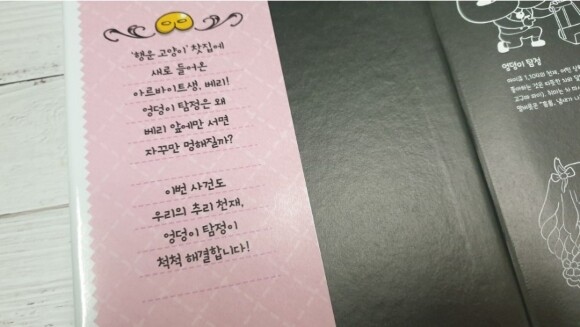 '행운 고양이' 찻집에
새로 들어온
아르바이트생, 베리!
엉덩이 탐정은 왜
베리 앞에만 서면
자꾸만 멍해질까?
이번 사건도
우리의 추리 천재,
엉덩이 탐정이
척척 해결합니다!
엉덩이 탐정